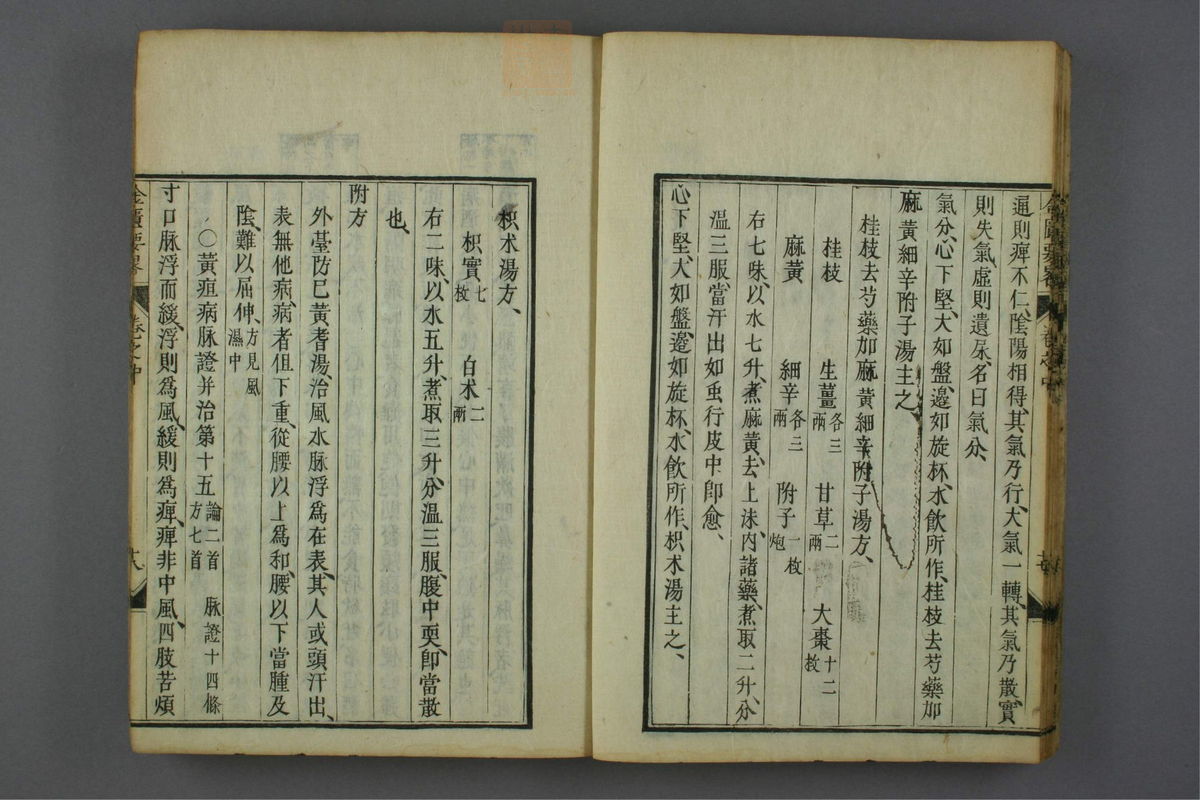 逼則痺不仁、陰陽相得、其氣乃行、大氣一轉、其氣乃散、實
則失氣、虛則遺尿、名曰氣分、
氣分、心下堅、大如盤、邊如旋杯、水飲所作、桂枝去芍藥加
麻黃細辛附子湯主之、
桂枝去芍藥加麻黃細辛附子湯方、
桂枝 生薑各三兩 甘草二兩 大棗十二枚
麻黃 細辛各三兩 附子一枚炮
右七味、以水七升、煮麻黃、去上沫、內諸藥、煮取二升、分
溫三服、當汗出如虫行皮中、即愈、
心下堅、大如盤、邊如旋杯、水飲所作、枳朮湯主之、
枳朮湯方、
枳實七枚 白朮二兩
右二味、以水五升、煮取三升、分溫三服、腹中耎、即當散
也、
附方
外臺防己黃耆湯治風水脉浮爲在表、其人或頭汗出、
表無他病、病者但下重、從腰以上爲和、腰以下當腫及
陰、難以屈伸、方見風濕中
○黃疸病脉證并治第十五論二首 脉證十四條方七首
寸口脉浮而緩、浮則爲風、緩則爲痺、痺非中風、四肢苦煩
金匱要畧 卷之中 十八